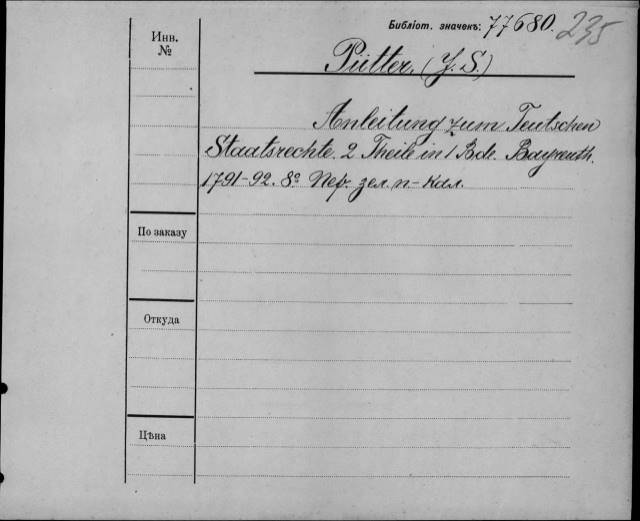 Библіот. значекъ: 77680. 235
Инв.
№
Pütter. (J. S.)
Anleitung zum Teutschen
Staatsrechte. 2 Theile in 1 Bde. Bayreuth.
1791-92. 8° Пер. зел. п- кал.
По заказу
Откуда
Цѣна